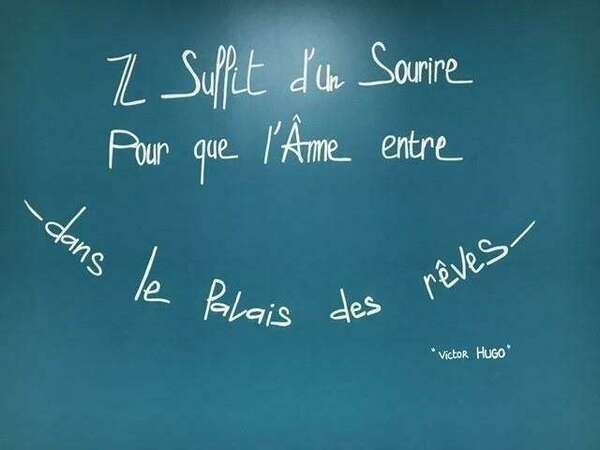 Il Suffit d'un Sourire
Pour que l'Âme entre
dans le Palais des rêves
"Victor HUGO"